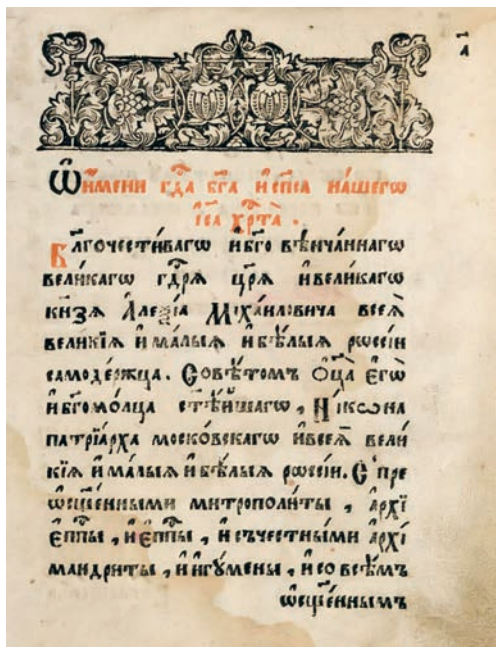 а҃
Ѿ и҆мени гдⷭ҇а бг҃а и҆ сп҃са на́шегѡ
і҆и҃са хрⷭ҇та̀ .
Бл҃гочести́вагѡ и҆ бг҃о вѣнча́ннагѡ
вели́кагѡ гдⷭ҇рѧ̀ цр҃ѧ̀ и҆ вели́кагѡ
кн҃зѧ А҆леѯі́а Мїха́иловича всеѧ̀
вели́кїѧ и҆ ма́лыѧ и҆ бѣ́лыѧ рѡсі́и
самоде́ржца . Совѣ́томъ Ѻ҆ц҃а̀ Є҆гѡ̀
и҆ бг҃омо́лца ст҃ѣ́йшагѡ , Ні́кѡна
патрїа́рха моско́вскагѡ и҆ всеѧ̀ вели́
кїѧ и҆ ма́лыѧ и҆ бѣ́лыѧ рѡсі́и . С пре
ѡ҆сщ҃е́нными митрополи́ты , а҆рхї
є҆пⷭ҇пы , и҆ є҆пⷭ҇пы , и҆ съ честны́ми а҆рхї
мандри́ты , и҆ и҆гꙋ́мены , и҆ со всѣ́мъ
ѡ҆сщ҃е́ннымъ